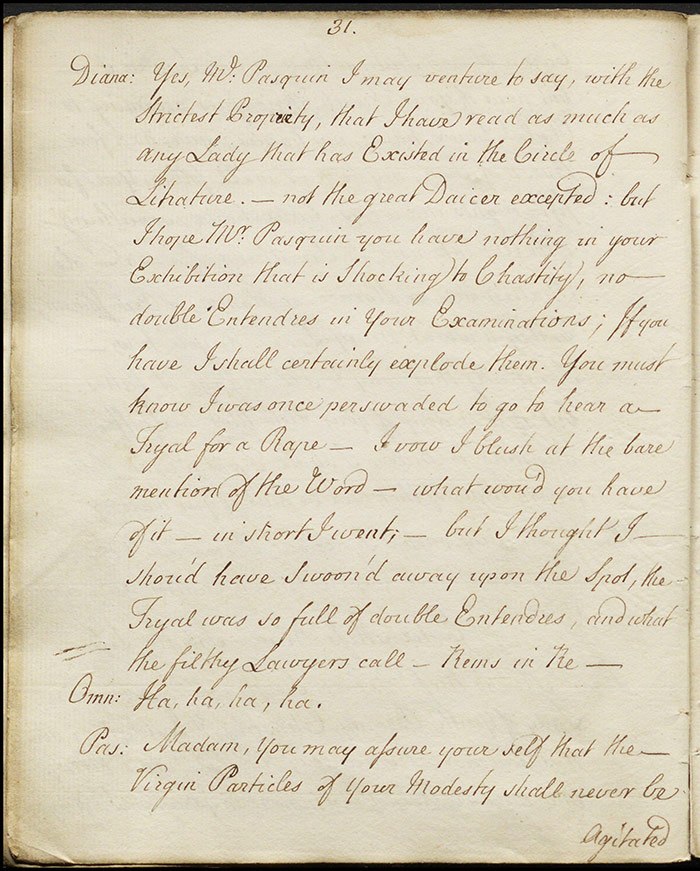 31.
Diana: Yes, Mr. Pasquin I may venture to say, with the
Strictest Propriety, that I have read as much as
any Lady that has Existed in the Circle of
Litrature. — not the great Daicer excepted: but
I hope Mr. Pasquin you have nothing in your
Exhibition that is Shocking to Chastity, no
double Entendres in Your Examinations; If you
have I shall certainly explode them. You must
know I was once perswaded to go to hear a
Tryal for a Rape — I vow I blush at the bare
mention of the Word — what wou'd you have
of it — in short I went, — but I thought I —
shou'd have Swoon'd away upon the Spot, the
Tryal was so full of double Entendres, and what
the filthy Lawyers call — Rems in Re —
Omn: Ha, ha, ha, ha.
Pas: Madam, You may assure your self that the —
Virgin Particles of Your Modesty shall never be
Agitated